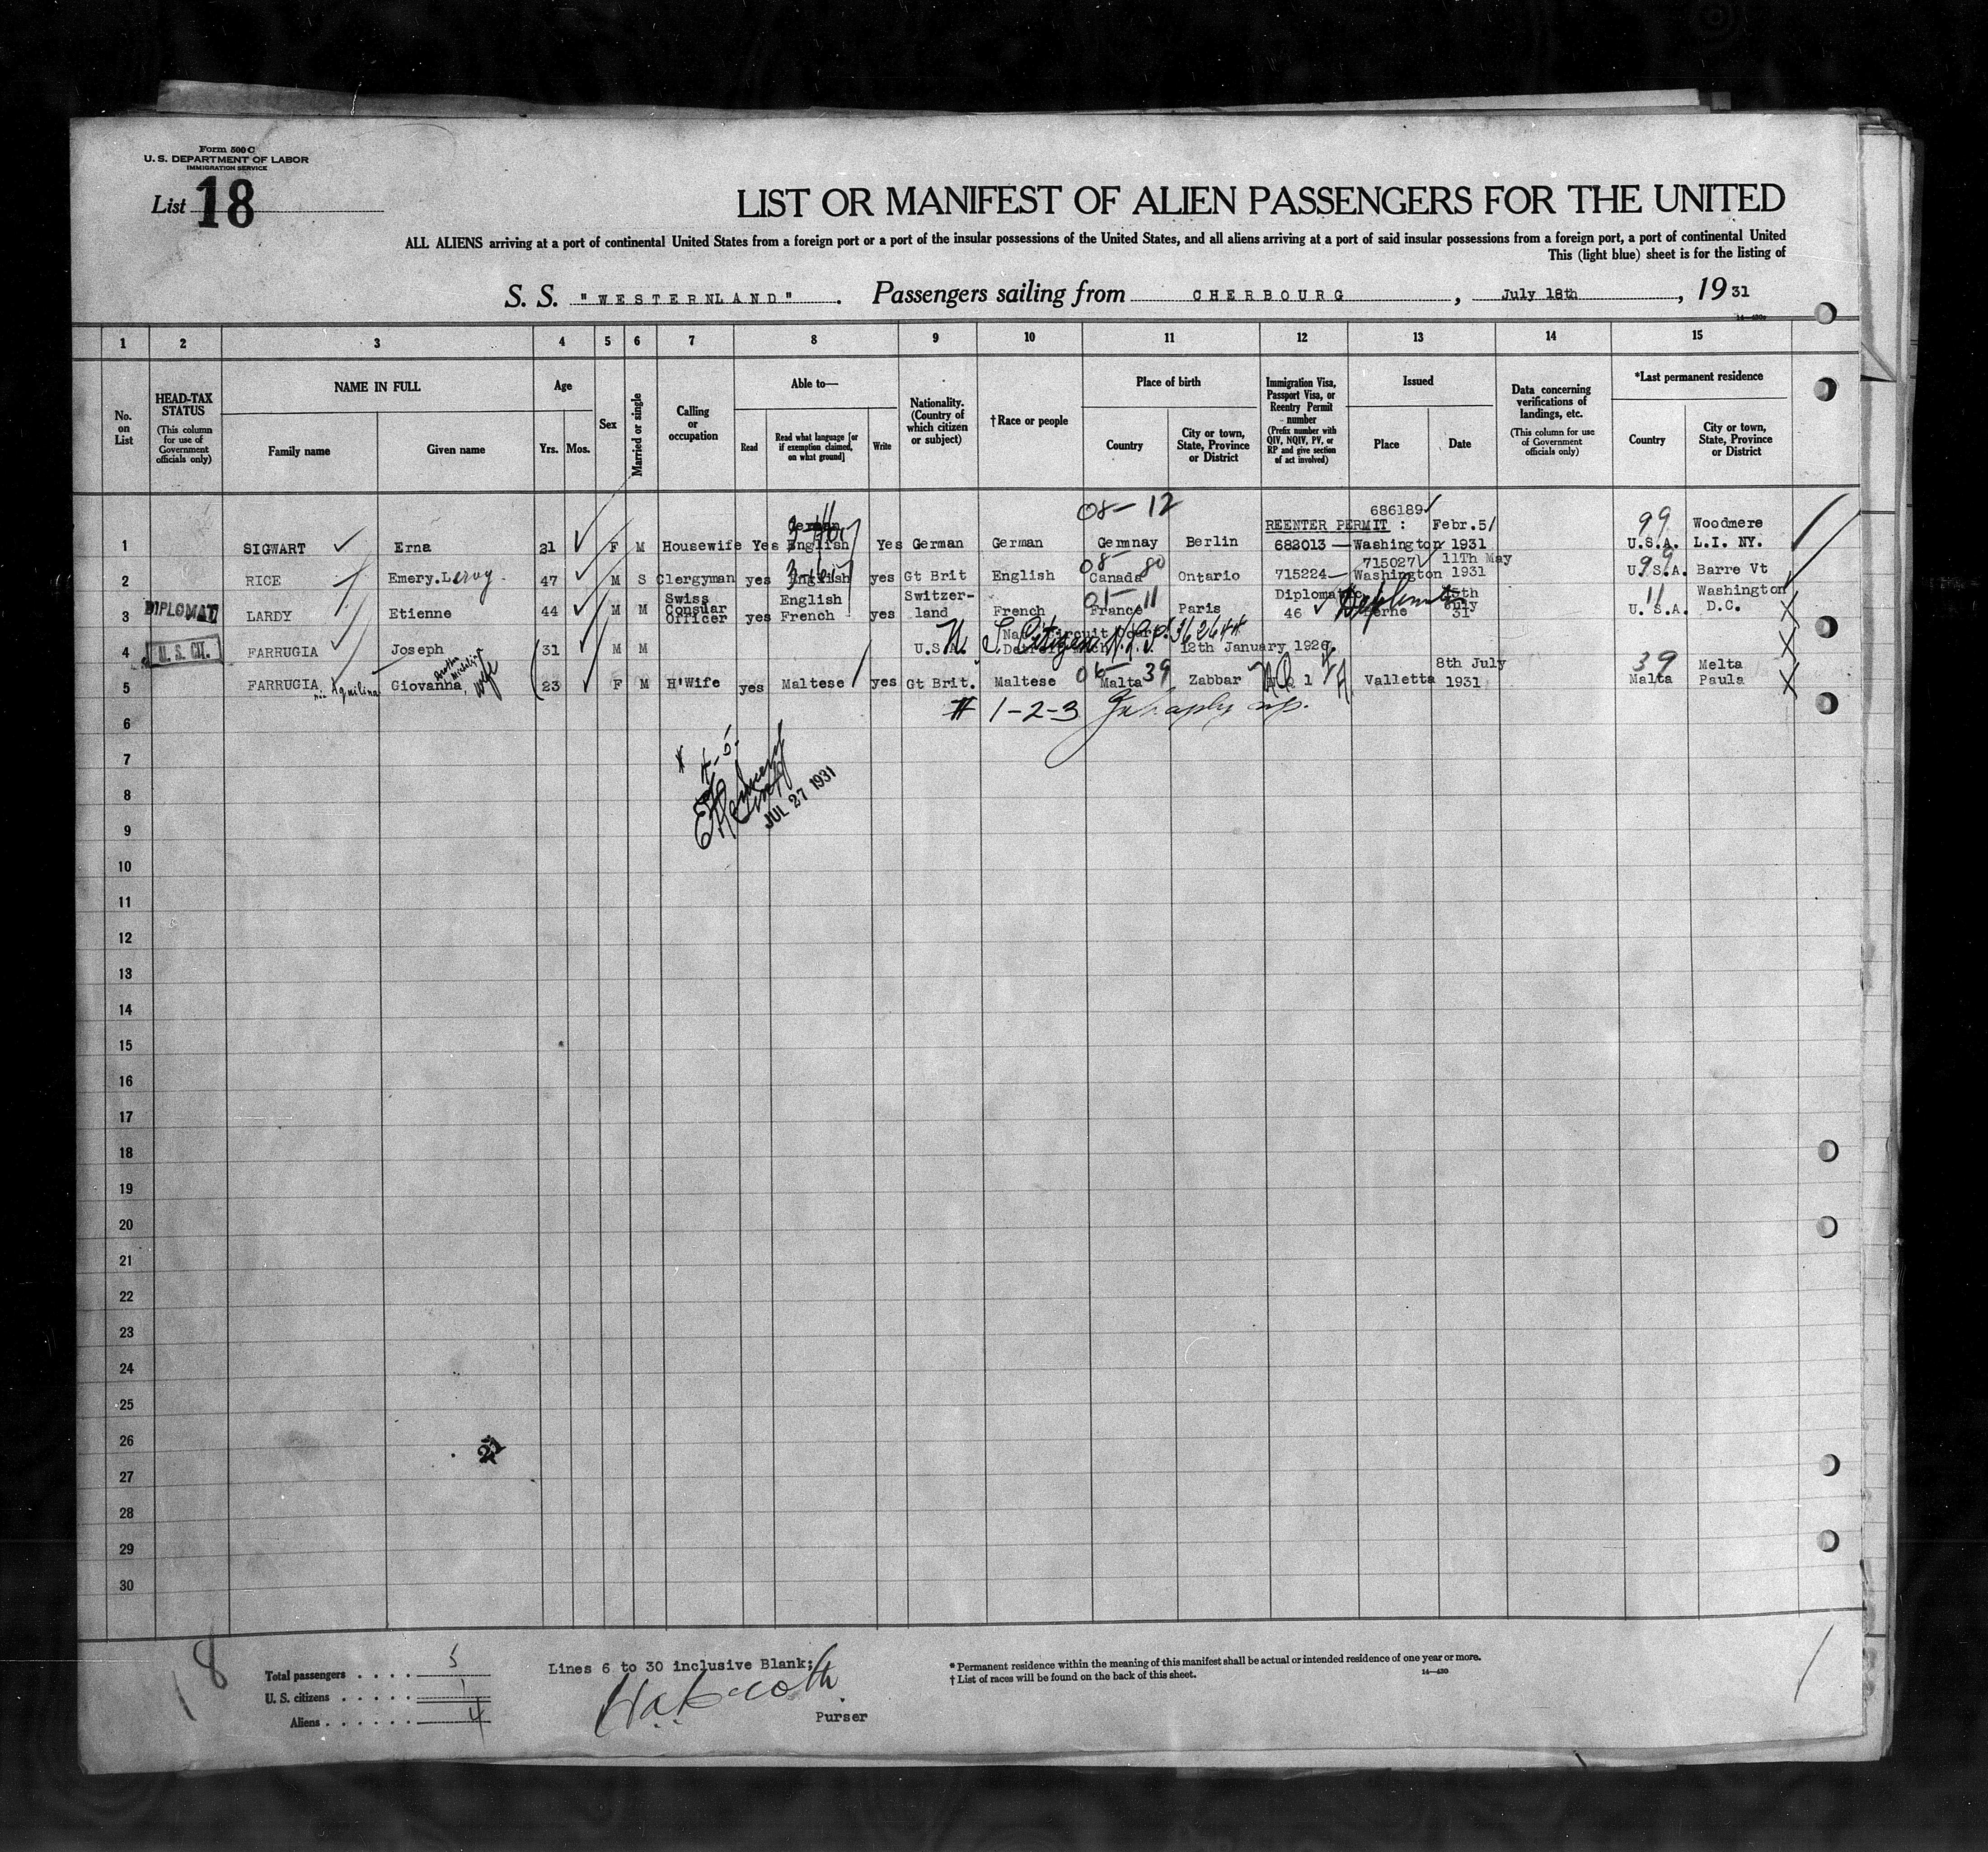 Form 500 C
U. S. DEPARTMENT OF LABOR
IMMIGRATION SERVICE
List 18
LIST OR MANIFEST OF ALIEN PASSENGERS FOR THE UNITED
ALL ALIENS arriving at a port of continental United States from a foreign port or a port of the insular possessions of the United States, and all aliens arriving at a port of said insular possessions from a foreign port, a port of continental United
This (light blue) sheet is for the listing of
S. S. "WESTERNLAND". Passengers sailing from CHERBOURG, July 18th, 19 31
14—430
1 2 3 4 5 6 7 8 9 10 11 12 13 14 15
No. on List
HEAD-TAX STATUS (This column for use of Government officials only)
NAME IN FULL
Family name Given name
Age
Yrs. Mos.
Sex
Married or single
Calling or occupation
Able to—
Read Read what language [or if exemption claimed, on what ground] Write
Nationality. (Country of which citizen or subject)
†Race or people
Place of birth
Country City or town, State, Province or District
Immigration Visa, Passport Visa, or Reentry Permit number (Prefix number with QIV, NQIV, PV, or RP and give section of act involved)
Issued
Place Date
Data concerning verifications of landings, etc. (This column for use of Government officials only)
*Last permanent residence
Country City or town, State, Province or District
08—12 686189
German REENTER PERMIT : Febr.5/ 99 Woodmere
1 SIGWART Erna 31 F M Housewife Yes English Yes German German Germnay Berlin 682013 — Washington 1931 U.S.A. L.I. NY.
08— 80 715027 11Th May 99
2 RICE Emery.Leroy. 47 M S Clergyman yes English yes Gt Brit English Canada Ontario 715224— Washington 1931 U.S.A. Barre Vt
Swiss English Switzer- 01—11 Diplomatic 15th 11 Washington
3 DIPLOMAT LARDY Etienne 44 M M Consuar Officer yes French yes land French France Paris 46 Berne July 31 U. S.A. D.C.
4 U. S. CIT. FARRUGIA Joseph 31 M M U.S.A. U. S. Citizen 12th January 1926
06— 39 8th July 39 Melta
5 FARRUGIA Aquilina Giovanna, wife 23 F M H'Wife yes Maltese yes Gt Brit. Maltese Malta Zabbar NQ 1 Valletta 1931 Malta Paula
6 # 1-2-3
7
8 JUL 27 1931
9
10
11
12
13
14
15
16
17
18
19
20
21
22
23
24
25
26 21
27
28
29
30
18
Total passengers . . . . 5
U. S. citizens . . . . . 1
Aliens . . . . . . 4
Lines 6 to 30 inclusive Blank;
Purser
* Permanent residence within the meaning of this manifest shall be actual or intended residence of one year or more.
† List of races will be found on the back of this sheet.
14—430